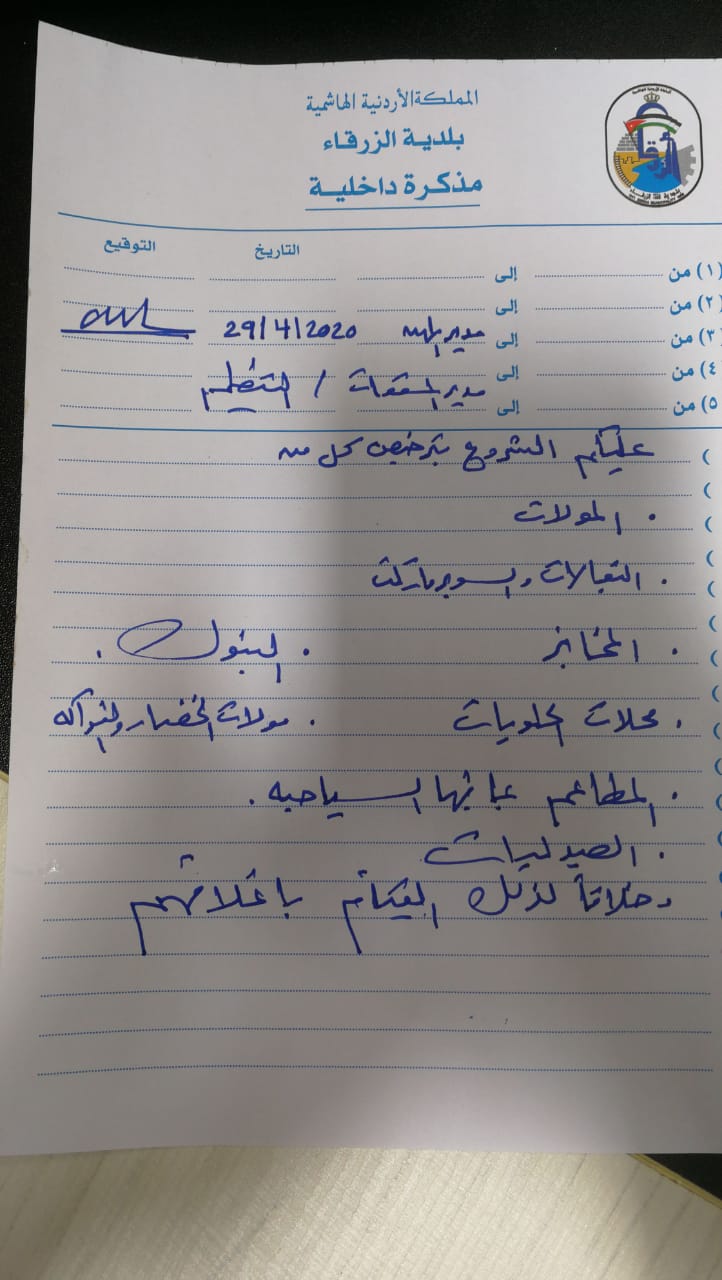 المملكة الأردنية الهاشمية
بلدية الزرقاء
مذكرة داخلية
التاريخ التوقيع
(١) من إلى
(٢) من إلى
(٣) من إلى مدير المهن 29/4/2020
(٤) من إلى
(٥) من إلى مدير / التنظيم
عليكم الشروع بترخيص كل من
. المولات
. البقالات والسوبرماركت
. المخابز . البنوك .
. محلات الحلويات . مولات الخضار والفواكه
. المطاعم بما فيها السياحيه .
. الصيدليات
وخلافاً لذلك القيام باغلاقهم